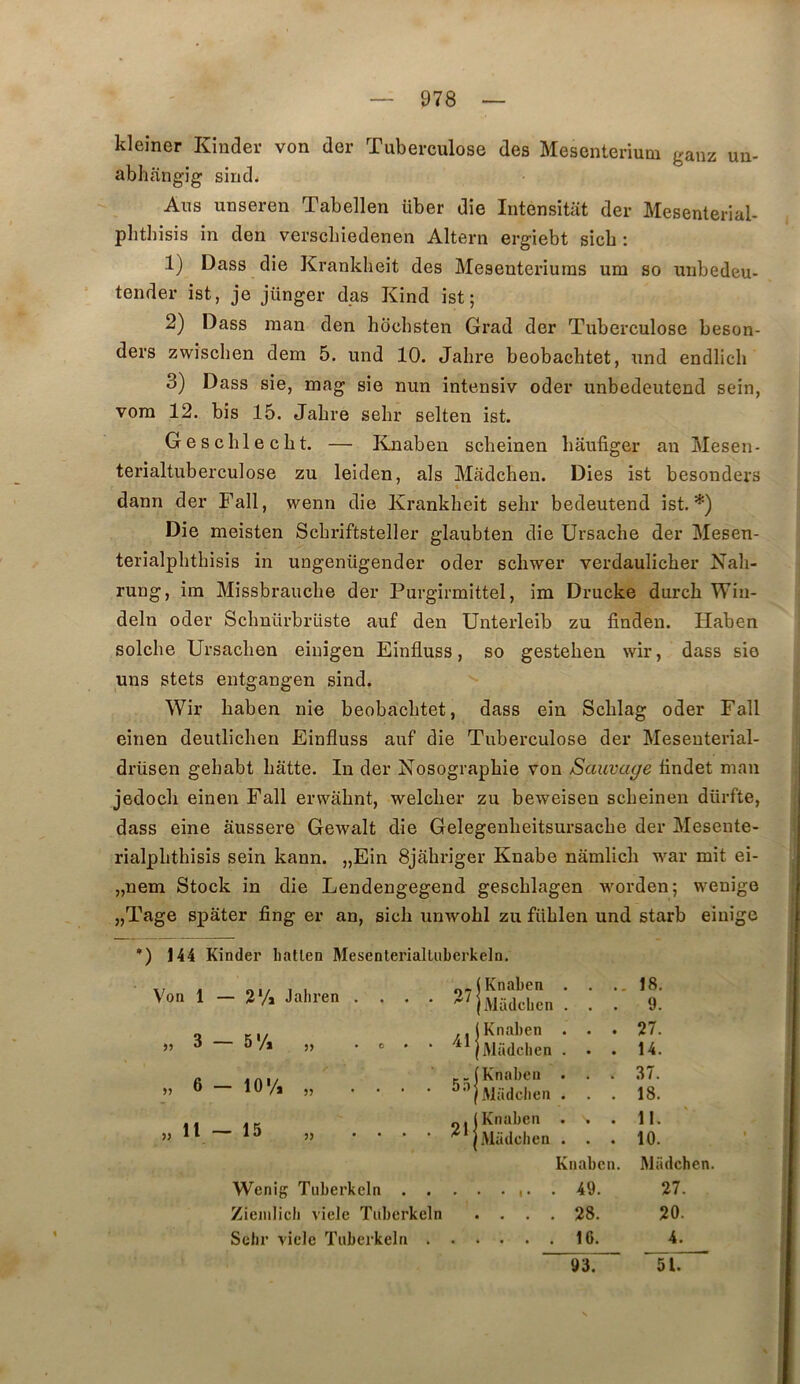 — 978 —
kleiner Kinder von der Tuberculose des Mesenterium ganz un-
abhängig sind.
Aus unseren Tabellen über die Intensität der Mesenterial-
phthisis in den verschiedenen Altern ergiebt sich :
1) Dass die Krankheit des Mesenteriums um so unbedeu-
tender ist, je jünger das Kind ist;
2) Dass man den höchsten Grad der Tuberculose beson-
ders zwischen dem 5. und 10. Jahre beobachtet, und endlich
3) Dass sie, mag sie nun intensiv oder unbedeutend sein,
vom 12. bis 15. Jahre sehr selten ist.
Geschlecht. — Knaben scheinen häufiger an Mesen-
terialtuberculose zu leiden, als Mädchen. Dies ist besonders
dann der Fall, wenn die Krankheit sehr bedeutend ist.*)
Die meisten Schriftsteller glaubten die Ursache der Mesen-
terialphthisis in ungenügender oder schwer verdaulicher Nah-
rung, im Missbrauche der Purgirmittel, im Drucke durch Win-
deln oder Schnürbrüste auf den Unterleib zu finden. Haben
solche Ursachen einigen Einfluss, so gestehen wir, dass sie
uns stets entgangen sind.
Wir haben nie beobachtet, dass ein Schlag oder Fall
einen deutlichen Einfluss auf die Tuberculose der Mesenterial-
drüsen gehabt hätte. In der Nosographie von Sauvage findet man
jedoch einen Fall erwähnt, welcher zu beweisen scheinen dürfte,
dass eine äussere Gewalt die Gelegenheitsursache der Mesente-
rialphthisis sein kann. „Ein 8jähriger Knabe nämlich war mit ei-
„nem Stock in die Lendengegend geschlagen worden; wenige
„Tage später fing er an, sich unwohl zu fühlen und starb einige
*) 144 Kinder hatten Mesenterialtuberkeln.
Von 1 — 2½ Jahren . . . . 27 { Knaben . . . 18.
Mädchen . . . 9.
„ 3 — 5½ „ . . . . 41 { Knaben . . . 27.
Mädchen . . . 14.
„ 6 — 10½ „ . . . . 55 { Knaben . . . 37.
Mädchen . . . 18.
„ 11 — 15 „ . . . . 21 { Knaben . . . 11.
Mädchen . . . 10.
Knaben. Mädchen.
Wenig Tuberkeln . . . . . . . . 49. 27.
Ziemlich viele Tuberkeln . . . . 28. 20.
Sehr viele Tuberkeln . . . . . . 16. 4.
93. 51.